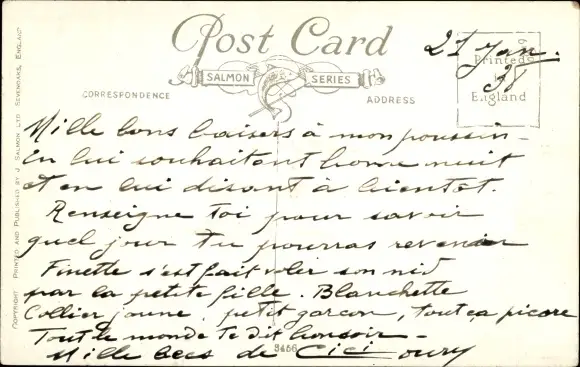 Post Card
21 Jan.
38
SALMON SERIES
Printed
in
England
CORRESPONDENCE
ADDRESS
COPYRIGHT PRINTED AND PUBLISHED BY J. SALMON LTD SEVENOAKS, ENGLAND
Mille bons baisers à mon poussin -
en lui souhaitant bonne nuit
et en lui disant à bientôt.
Renseigne toi pour savoir
quel jour tu pourras revenir
Finette s'est fait voler son nid
par la petite fille. Blanchette
Collier jaune, petit garçon, tout ça picore
Tout le monde te dit bonsoir -
Mille becs de Cici
3456